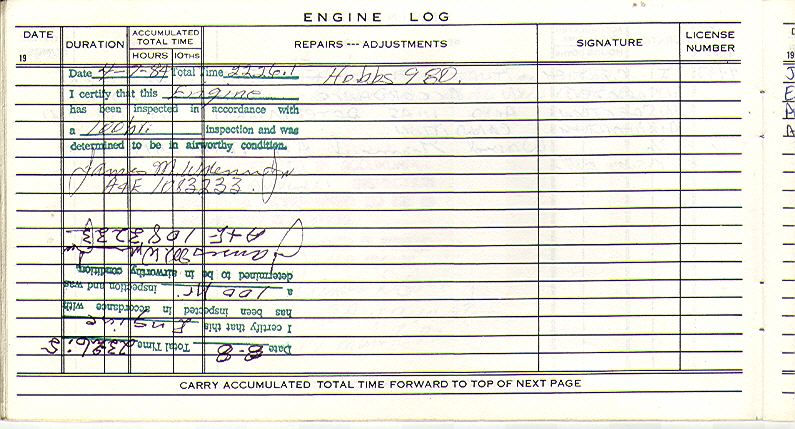 ENGINE LOG
DATE
19
DURATION
ACCUMULATED TOTAL TIME
HOURS 10THS
REPAIRS --- ADJUSTMENTS
SIGNATURE
LICENSE NUMBER
Date 4-7-84 Total Time 2226.1 Hobbs 980.
I certify that this Engine
has been inspected in accordance with
a 100 hr inspection and was
determined to be in airworthy condition.
James M.
A&E 1083233
Date 8-8 Total Time
I certify that this Engine
has been inspected in accordance with
a 100 Hr. inspection and was
determined to be in airworthy condition.
James
A+E 1083233
CARRY ACCUMULATED TOTAL TIME FORWARD TO TOP OF NEXT PAGE
19